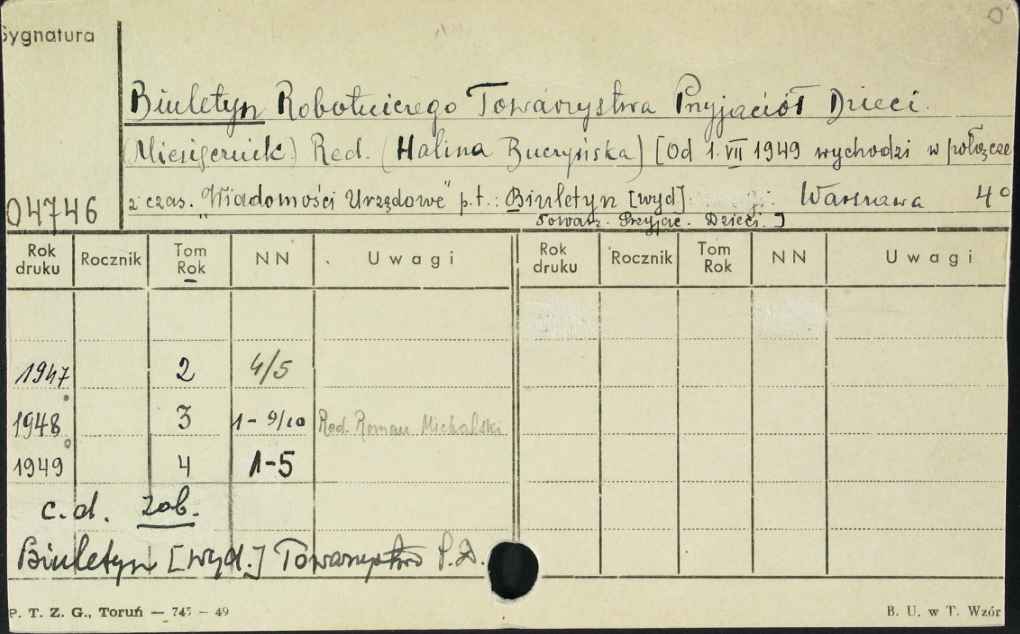 Sygnatura
Biuletyn Robotniczego Towarzystwa Przyjaciół Dzieci.
(Miesięcznik.) Red. (Halina Buczyńska) [Od 1. VII 1949 wychodzi w połącze
z czas. "Wiadomości Urzędowe" p.t.: Biuletyn [wyd]. Warszawa 4°
04746
Towarz. Przyjac. Dzieci.]
Rok druku Rocznik Tom Rok NN Uwagi Rok druku Rocznik Tom Rok NN Uwagi
1947 2 4/5
1948 3 1-9/10 Red. Roman Michalski
1949 4 1-5
c.d. zob.
Biuletyn [wyd.] Towarzystwo P.D.
P. T. Z. G., Toruń — 745 — 49 B. U. w T. Wzór